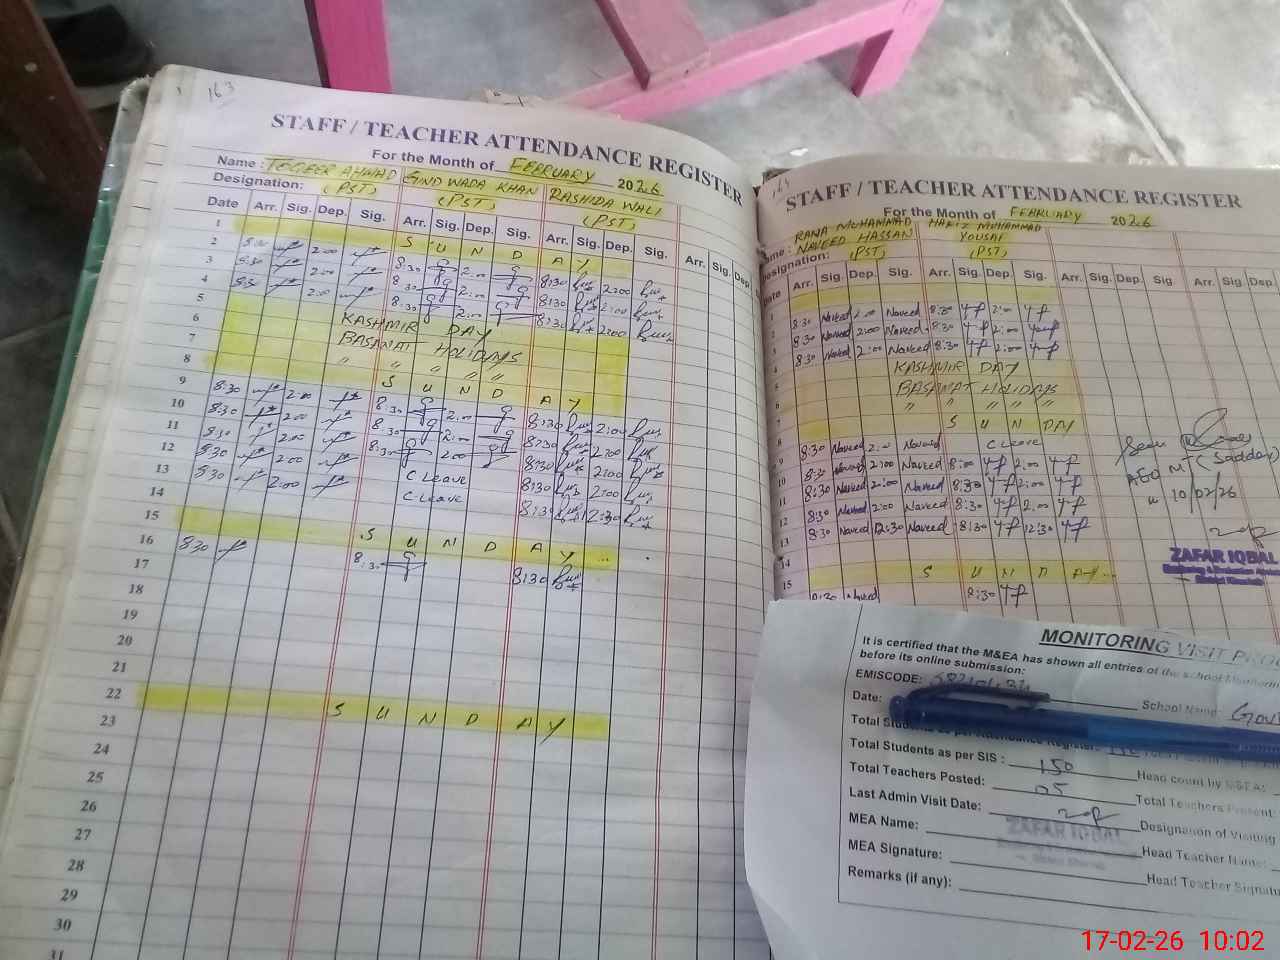 163
STAFF / TEACHER ATTENDANCE REGISTER
For the Month of FEBRUARY 2026
Name : TOQEER AHMAD GIND WADA KHAN RASHIDA WALI
Designation: (PST) (PST) (PST)
Date Arr. Sig. Dep. Sig. Arr. Sig. Dep. Sig. Arr. Sig. Dep. Sig. Arr. Sig. Dep.
1 S U N D A Y
2 8:30 2:00 8:30 2:00 8:30 2:00
3 8:30 2:00 8:30 2:00 8:30 2:00
4 8:30 2:00 8:30 2:00 8:30 2:00
5 KASHMIR DAY
6 BASANAT HOLIDAYS
7 " " " "
8 S U N D A Y
9 8:30 2:00 8:30 2:00 8:30 2:00
10 8:30 2:00 8:30 2:00 8:30 2:00
11 8:30 2:00 8:30 2:00 8:30 2:00
12 8:30 2:00 C Leave 8:30 2:00
13 8:30 2:00 C Leave 8:30 12:30
14
15 S U N D A Y ...
16 8:30 8:30 8:30
17
18
19
20
21
22 S U N D A Y
23
24
25
26
27
28
29
30
31
STAFF / TEACHER ATTENDANCE REGISTER
For the Month of FEBRUARY 2026
RANA MUHAMMAD HAFIZ MUHAMMAD
NAVEED HASSAN YOUSAF
Designation: (PST) (PST)
Date Arr. Sig. Dep. Sig. Arr. Sig. Dep. Sig. Arr. Sig. Dep. Sig Arr. Sig. Dep.
1
2 8:30 Naveed 2:00 Naveed 8:30 2:00
3 8:30 Naveed 2:00 Naveed 8:30 2:00
4 8:30 Naveed 2:00 Naveed 8:30 2:00
5 KASHMIR DAY
6 BASANAT HOLIDAYS
7 " " " "
8 S U N DAY
9 8:30 Naveed 2:00 Naveed C Leave
10 8:30 Naveed 2:00 Naveed 8:00 2:00
11 8:30 Naveed 2:00 Naveed 8:30 2:00
12 8:30 Naveed 2:00 Naveed 8:30 2:00
13 8:30 Naveed 12:30 Naveed 8:30 12:30
14
15 S U N D A Y ...
8:30 Naveed 8:30
Seen
AEO MTC Saddar
10/02/26
ZAFAR IQBAL
MONITORING VISIT
It is certified that the M&EA has shown all entries of the school
before its online submission:
EMISCODE:
Date: School Name: Gov
Total Students as per Attendance Register:
Total Students as per SIS : 150 Head count by M&EA:
Total Teachers Posted: 05 Total Teachers Present:
Last Admin Visit Date: Designation of Visiting
MEA Name: ZAFAR IQBAL Head Teacher Name:
MEA Signature: Head Teacher Signatu
Remarks (if any):
17-02-26 10:02